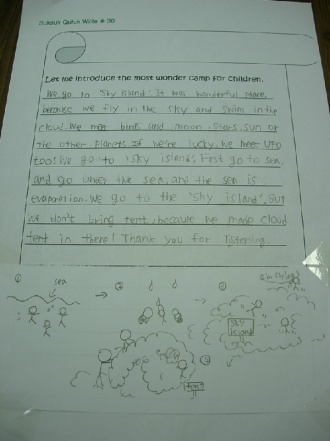 Quick Write # 30
Let me introduce the most wonder camp for children.
We go to 'Sky island'. It was wonderful place,
because we fly in the sky and swim in the
cloud. We meet birds and moon, stars, sun or
the other planets. If we're lucky, we meet UFO
too! We go to 'sky island'. First go to sea,
and go under the sea, and the sea is
evaporation. We go to the 'sky island'. But
we don't bring tent, because we made cloud
tent in there! Thank you for listening.
sea
I'm flying!
sky
island